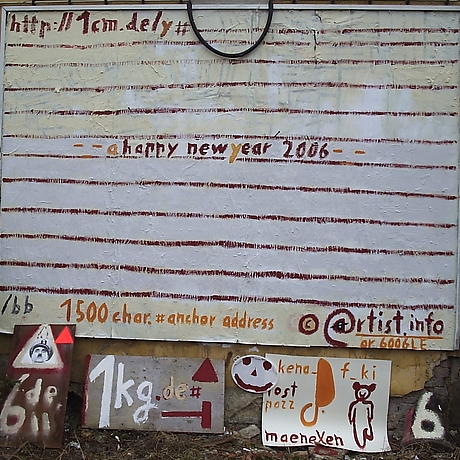 http://1cm.de/y#
--a happy new year 2006--
/bb
1500 char.#anchor address
© @rtist.info
or GOOGLE
1kg.de#
kena_
f_ki
maenexen
6